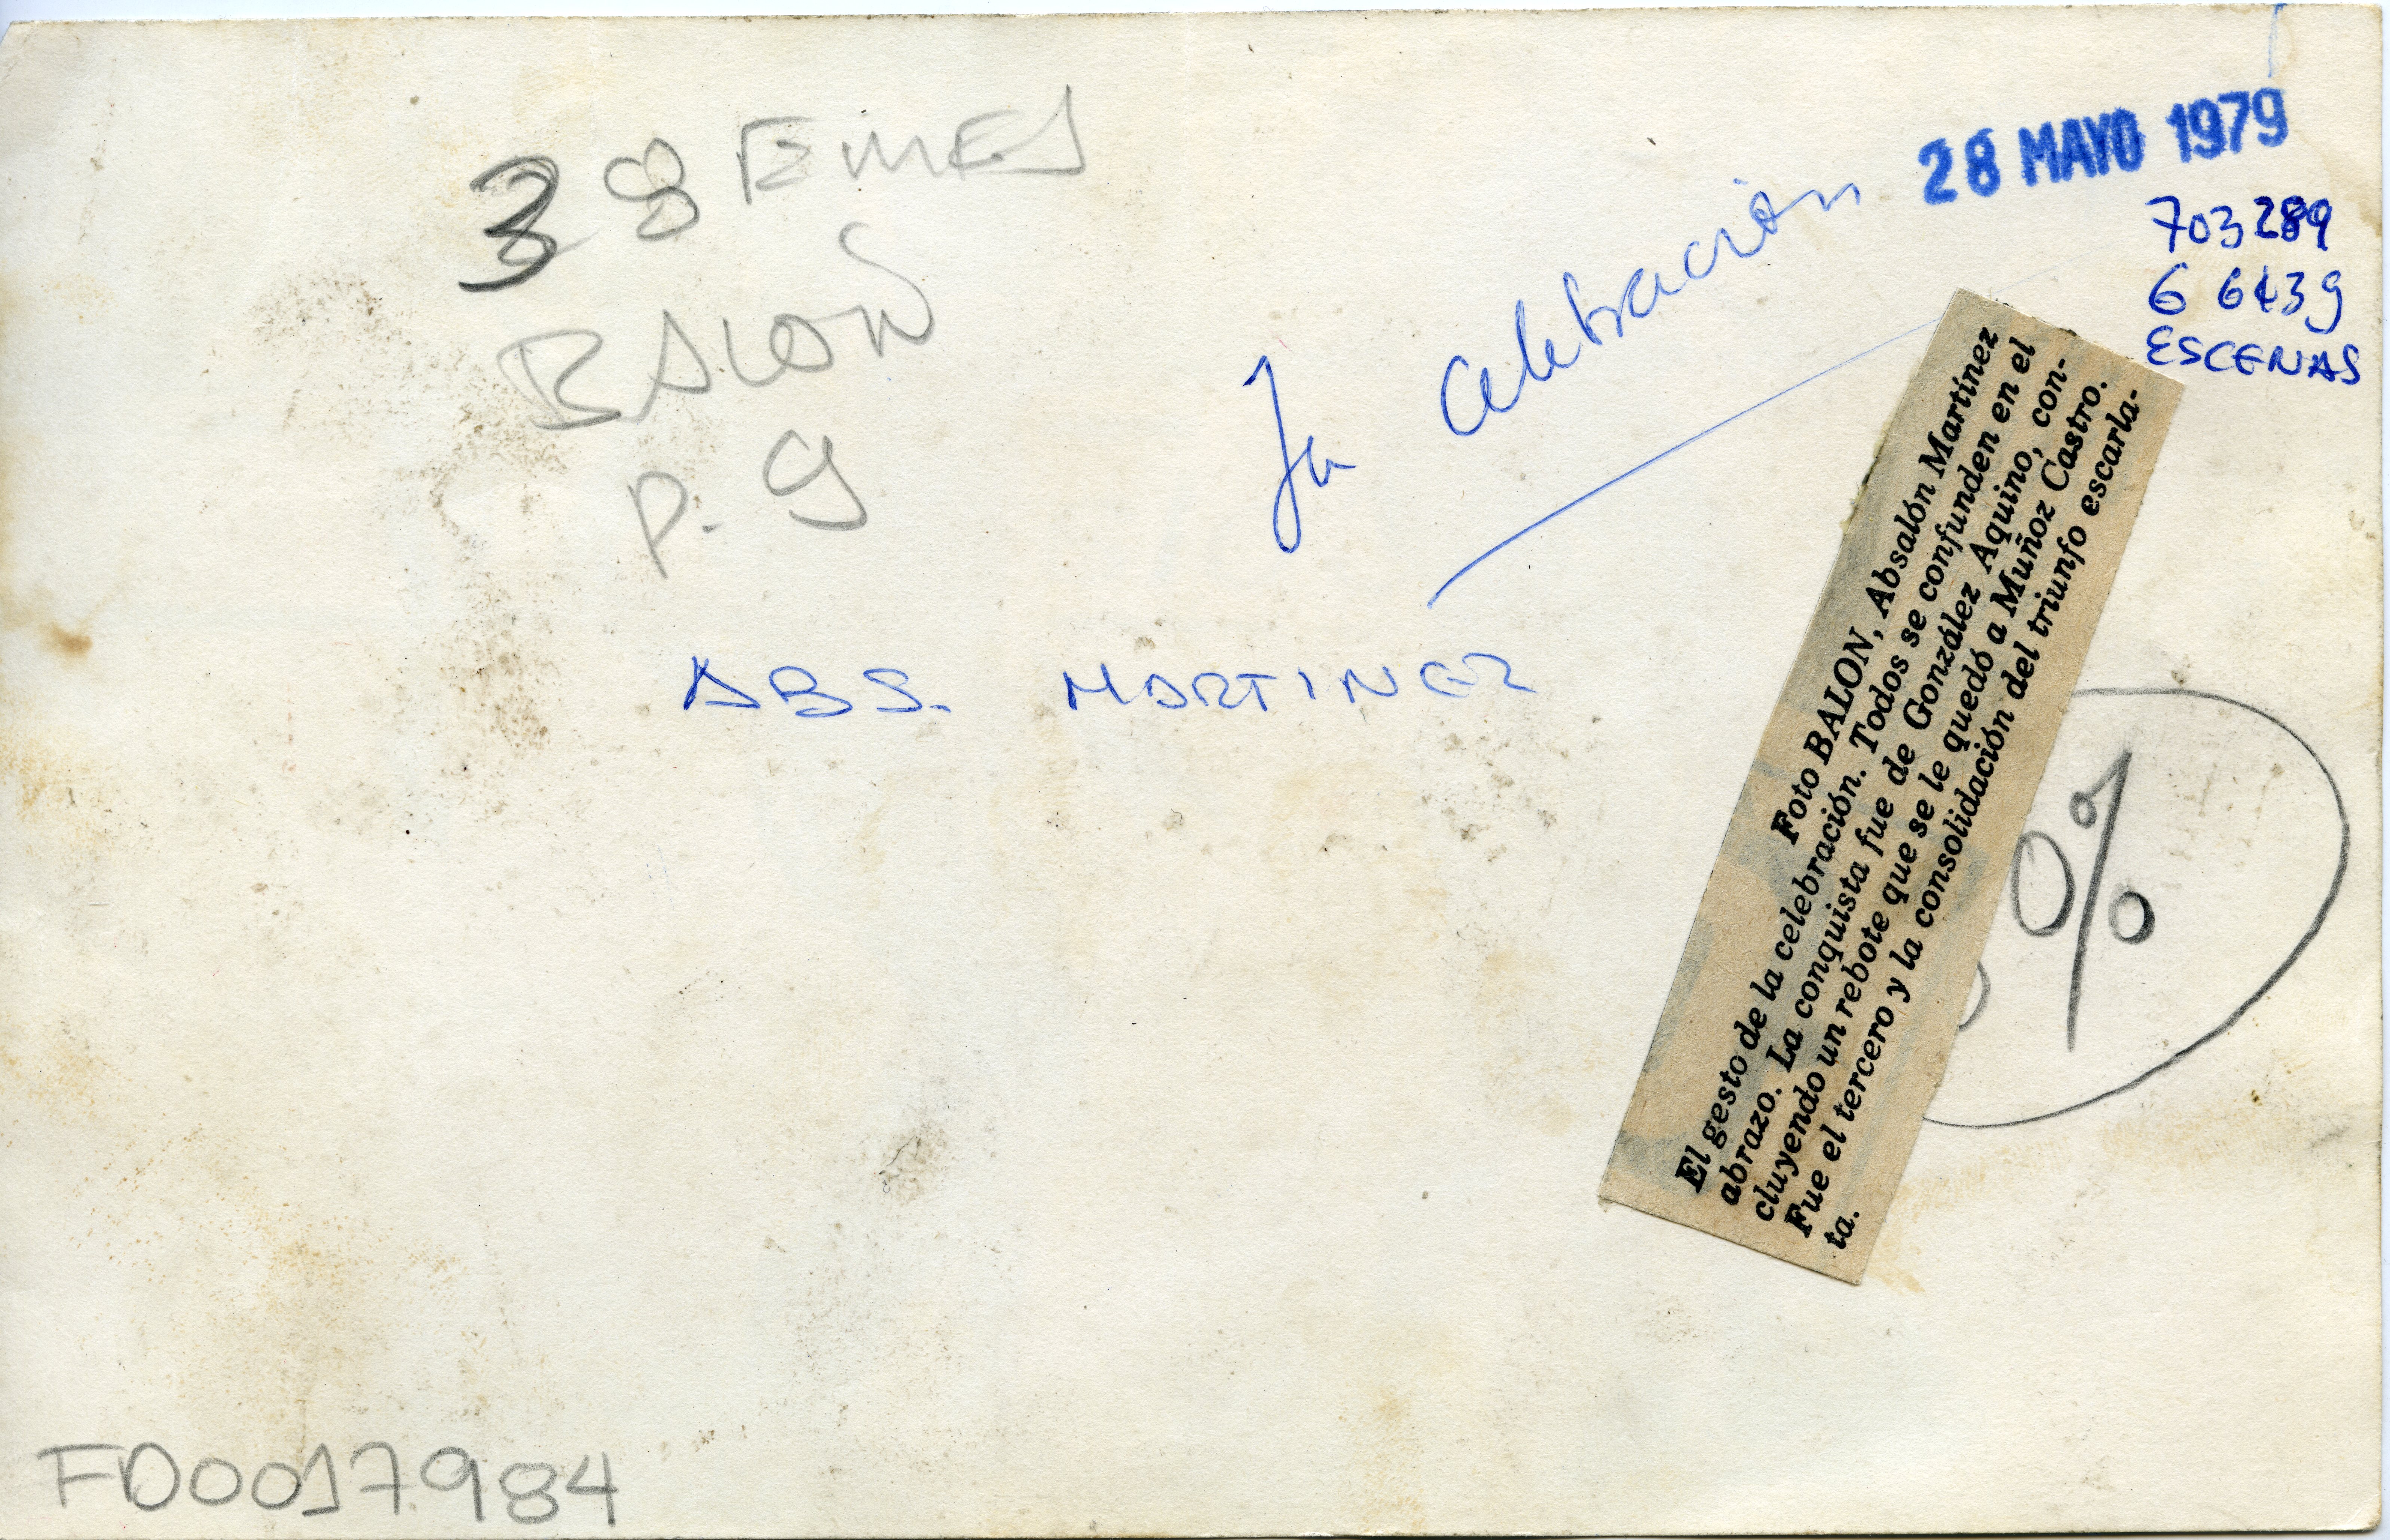 38 EMES
BALON
P. 9
28 MAYO 1979
703289
6 6439
ESCENAS
La celebración
ABS. MARTINEZ
Foto BALON, Absalón Martínez
El gesto de la celebración. Todos se confunden en el
abrazo. La conquista fue de González Aquino, con-
cluyendo un rebote que se le quedó a Muñoz Castro.
Fue el tercero y la consolidación del triunfo escarla-
ta.
0%
FD0017984